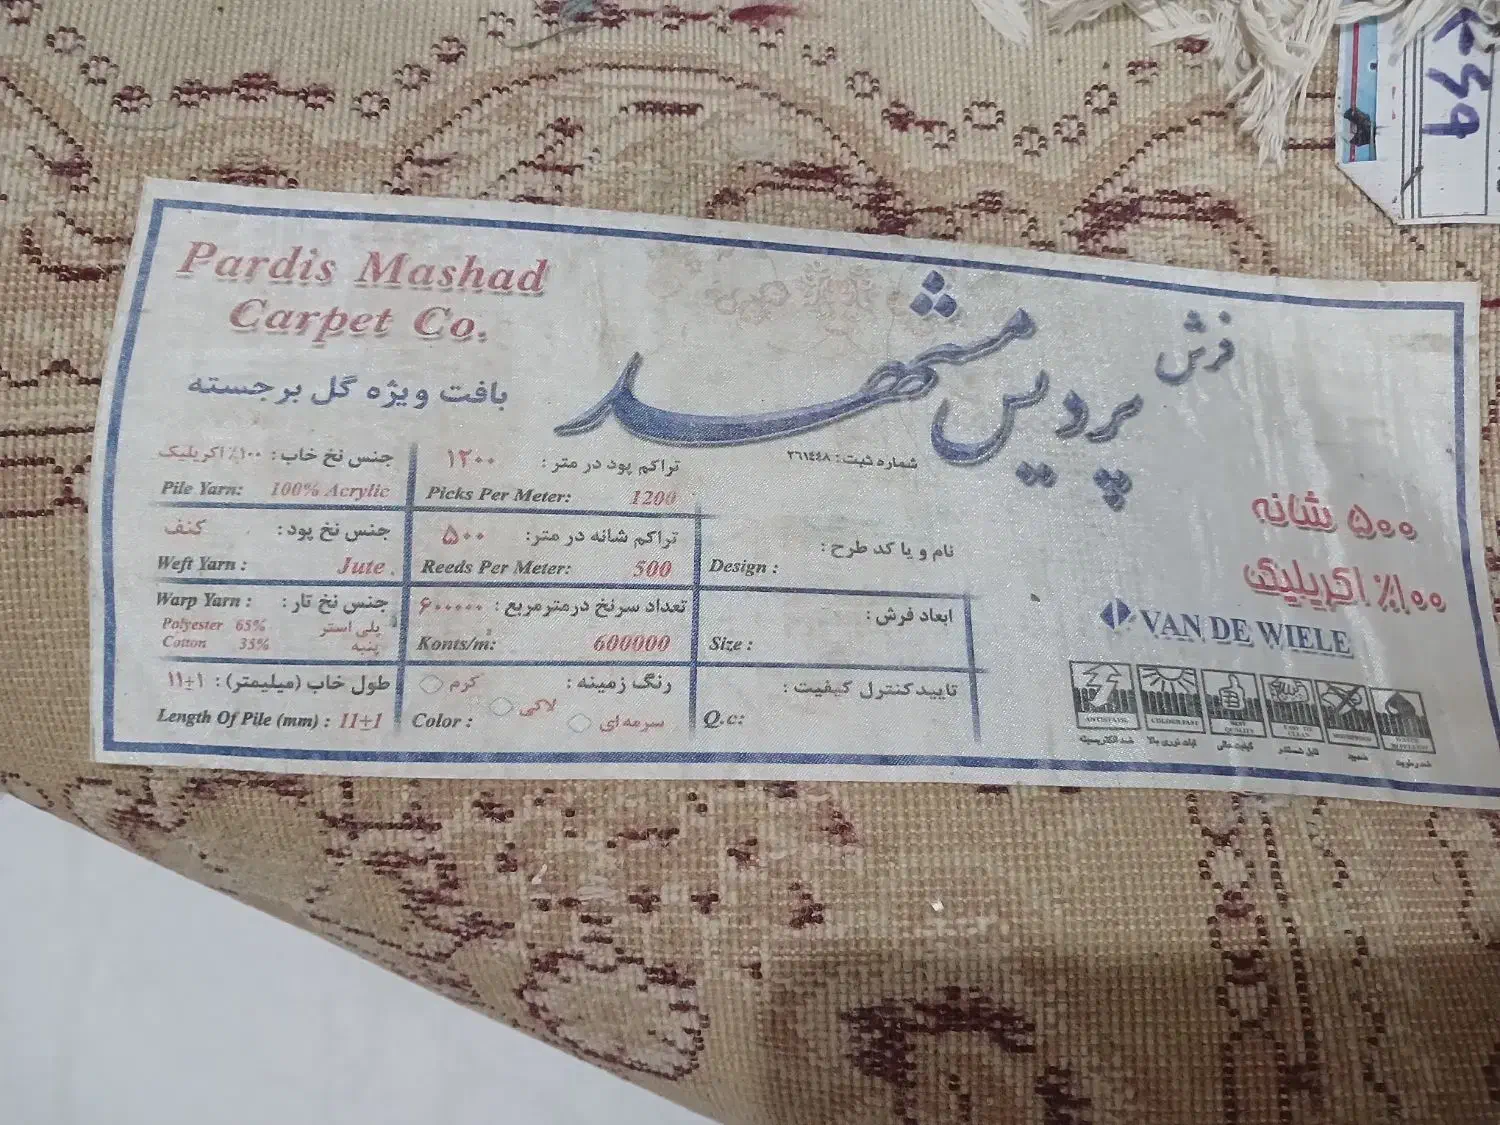 Pardis Mashad
Carpet Co.
فرش پردیس مشهد
بافت ویژه گل برجسته
شماره ثبت: ٢٦١٤٤٨
جنس نخ خاب: ۱۰۰٪ اکریلیک
Pile Yarn: 100% Acrylic
تراکم پود در متر: ۱۲۰۰
Picks Per Meter: 1200
جنس نخ پود: کنف
Weft Yarn: Jute
تراکم شانه در متر: ۵۰۰
Reeds Per Meter: 500
نام و یا کد طرح:
Design:
جنس نخ تار:
Warp Yarn:
Polyester 65% پلی استر
Cotton 35% پنبه
تعداد سرنخ درمترمربع: ۶۰۰۰۰۰
Konts/m: 600000
ابعاد فرش:
Size:
طول خاب (میلیمتر): ۱۱±۱
Length Of Pile (mm): 11±1
رنگ زمینه: کرم لاکی سرمه‌ای
Color:
تایید کنترل کیفیت:
Q.c:
۵۰۰ شانه
۱۰۰٪ اکریلیک
VAN DE WIELE
ANTISTATIC
COLOURFAST
BEST QUALITY
EASY TO CLEAN
MOTHPROOF
ضد الکتریسیته
ثبات نوری بالا
کیفیت عالی
قابل شستشو
ضدبید
ضد رطوبت